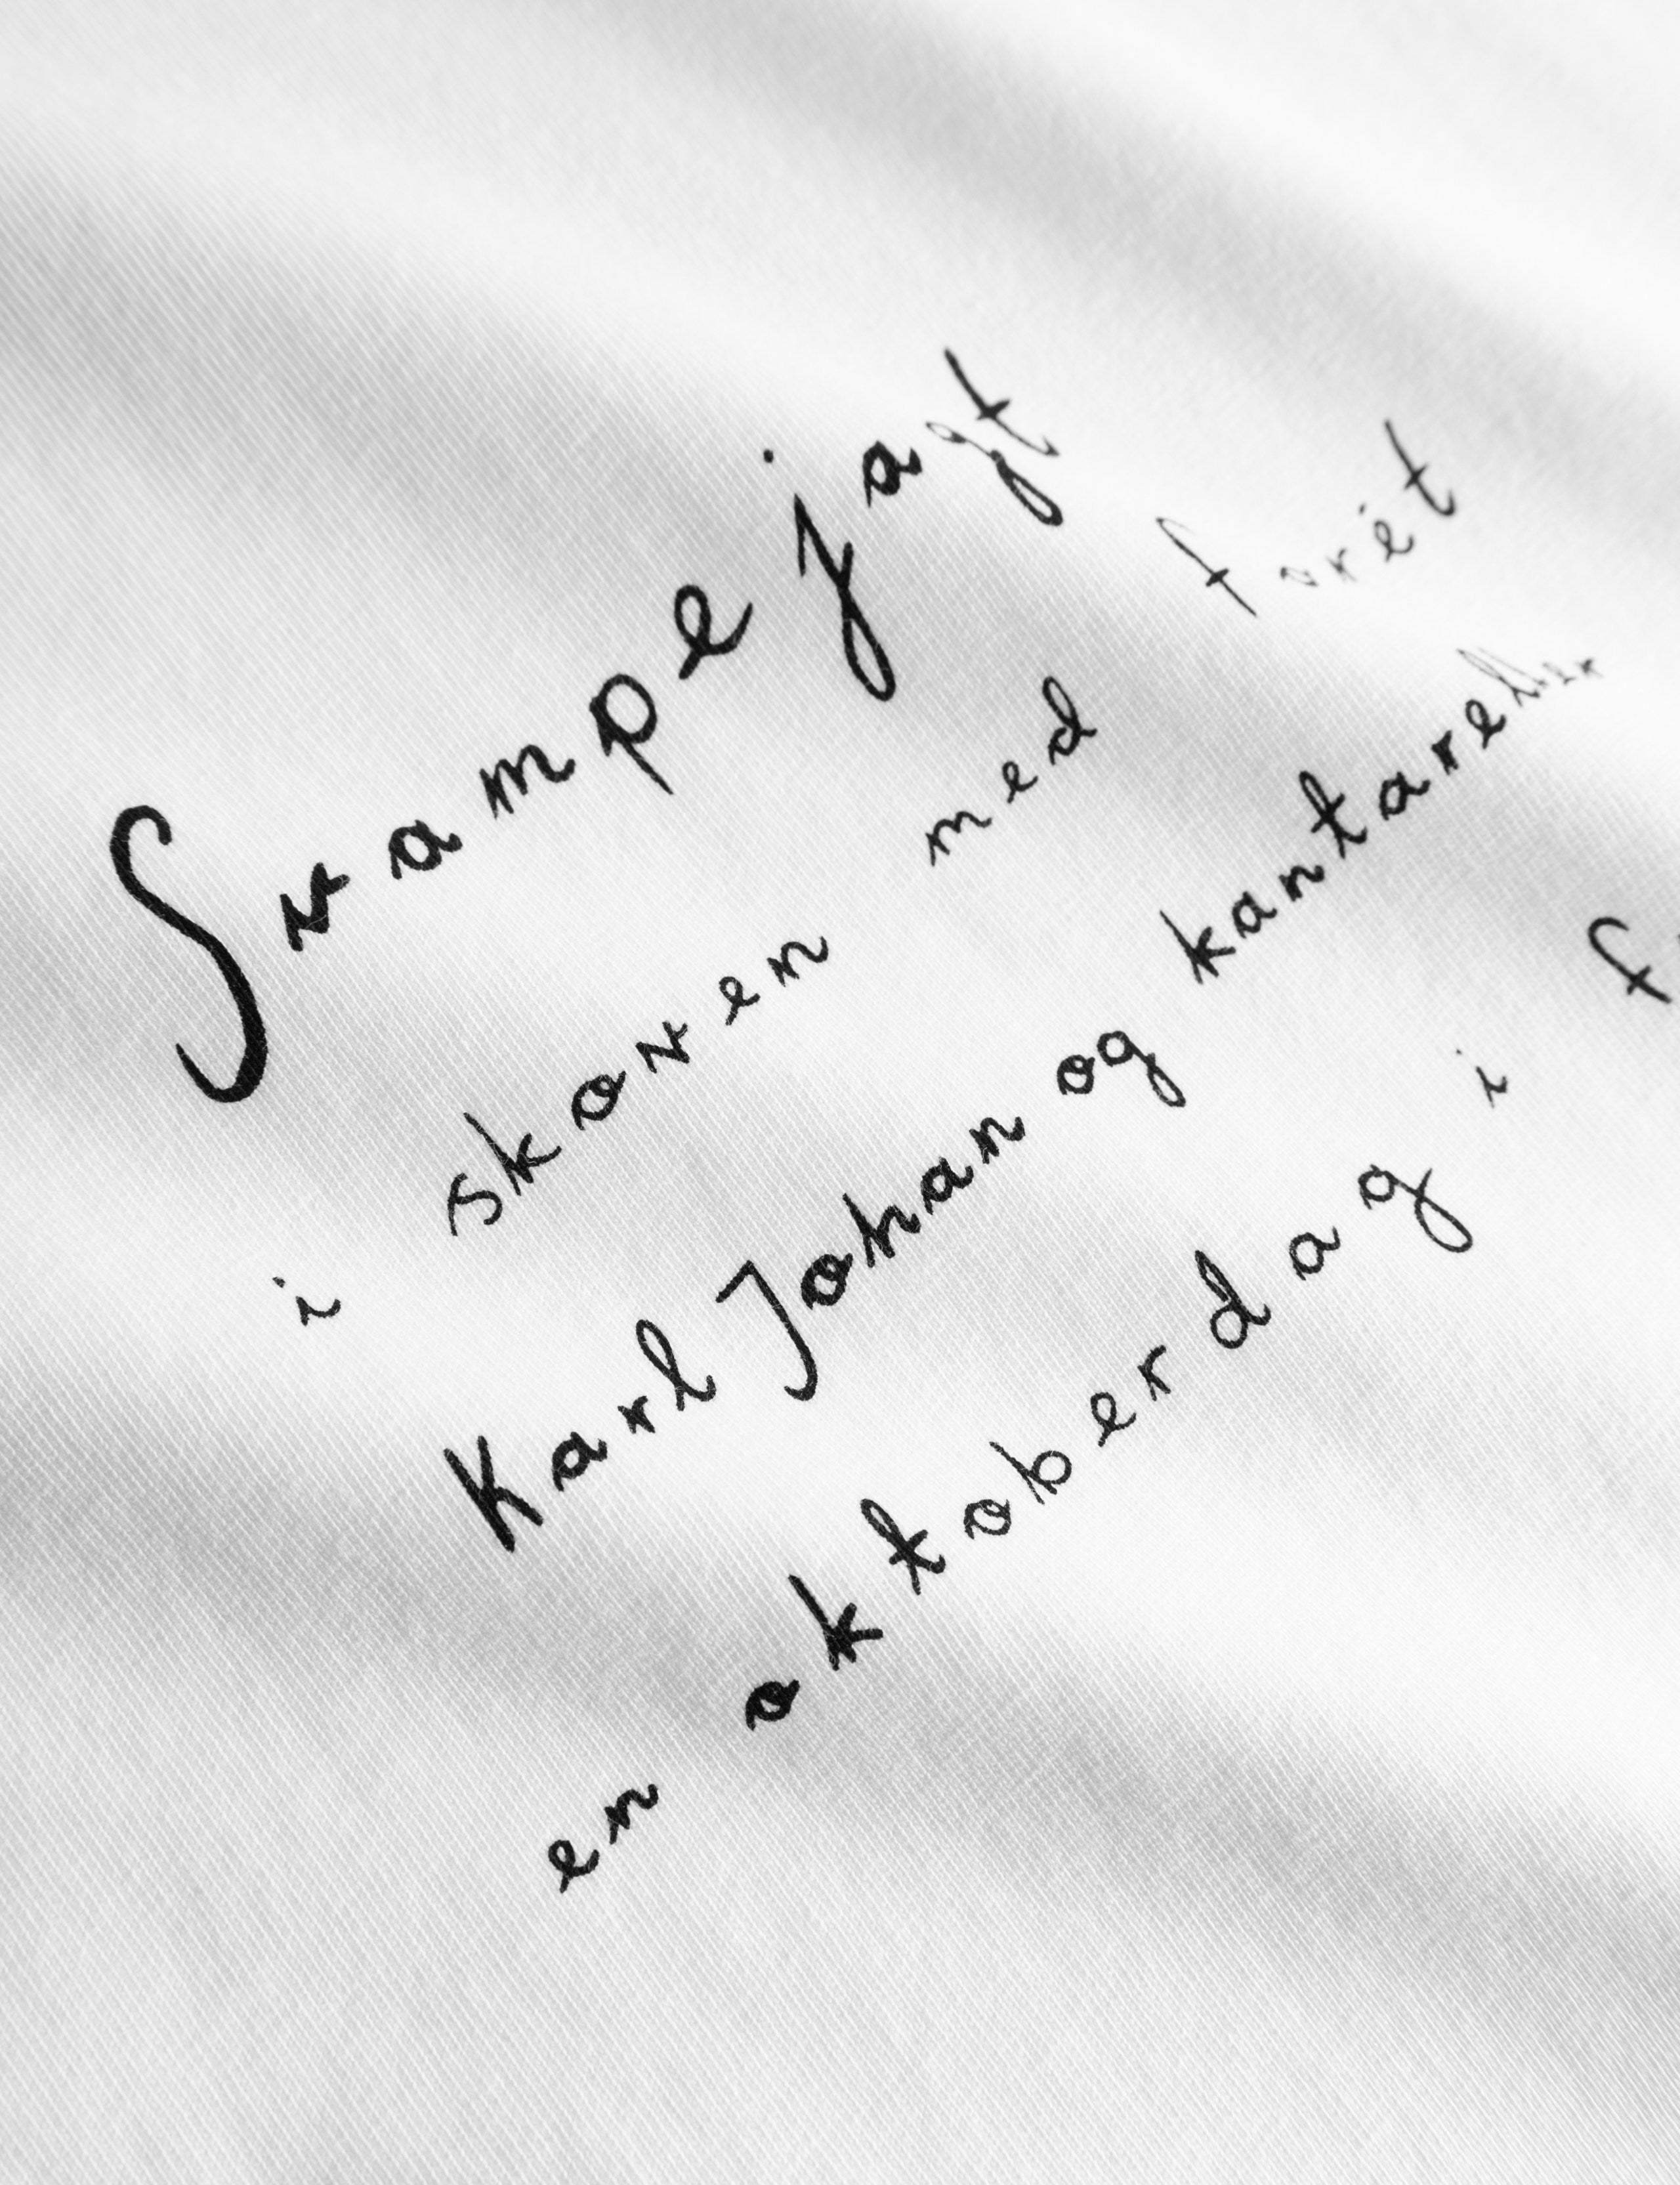 Svampejagt
i skoven med forét
Karl Johan og kantareller
en oktoberdag i